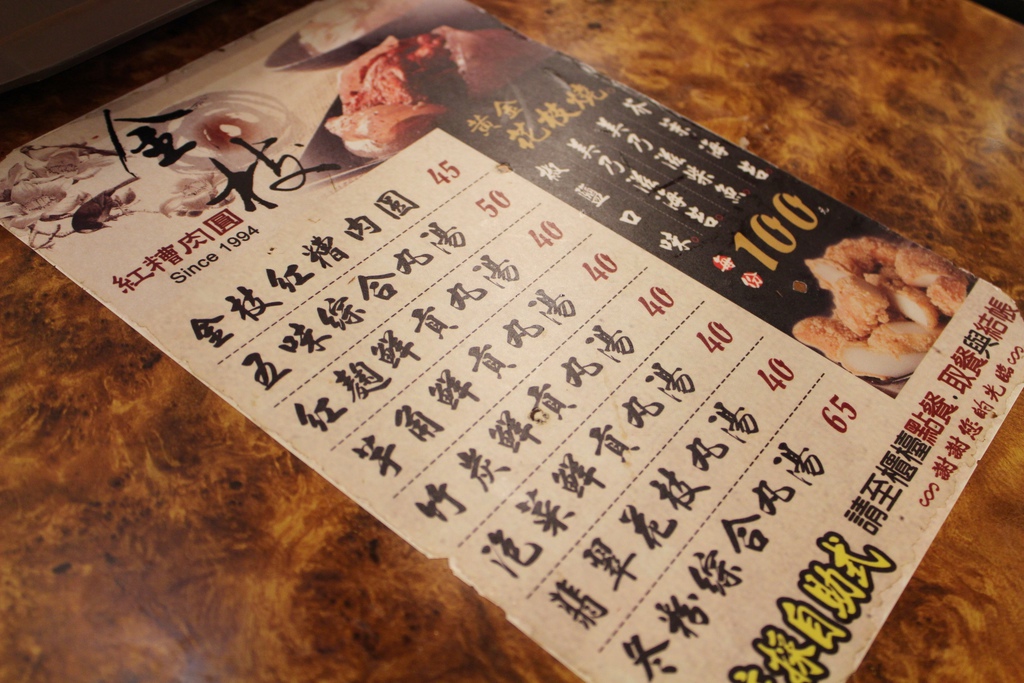 金枝
紅糟肉圓
Since 1994
金枝紅糟肉圓 45
五味綜合丸湯 50
紅麴鮮貢丸湯 40
芋角鮮貢丸湯 40
竹炭鮮貢丸湯 40
泡菜鮮貢丸湯 40
翡翠花枝丸湯 40
冬粉綜合丸湯 65
黃金
花枝燒
芥茉海苔
美乃滋柴魚
美乃滋海苔
椒鹽口味
每份 100元
請至櫃檯點餐.取餐與結帳
謝謝您的光臨
採自助式